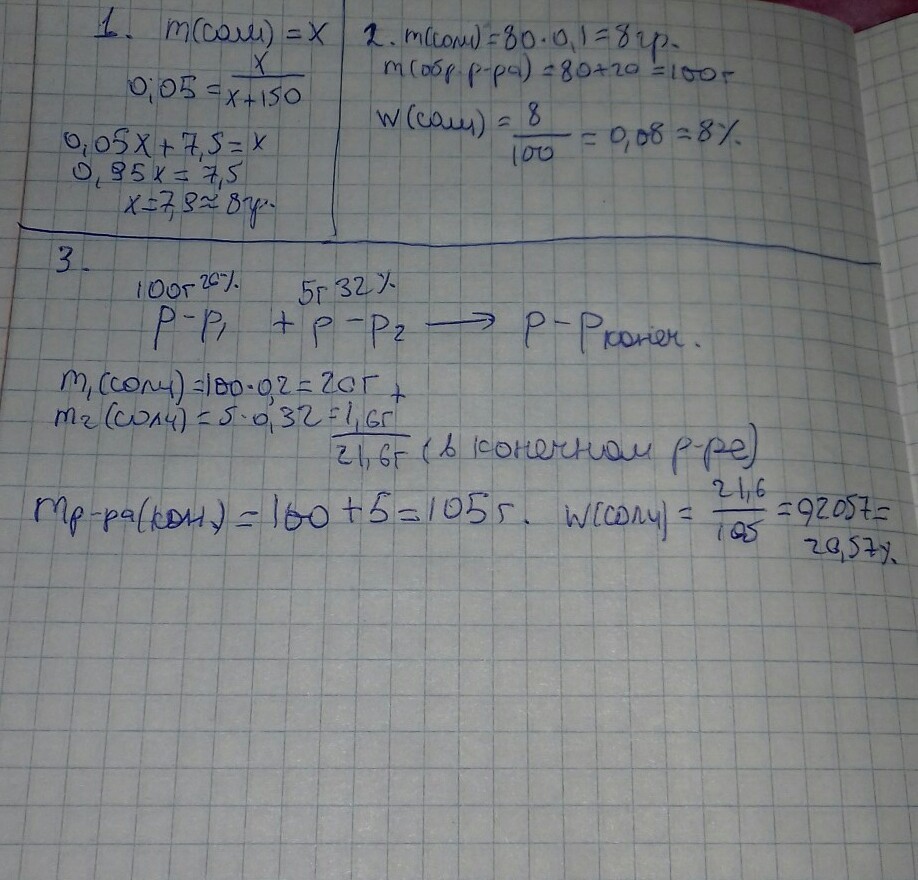 1. m(соли) = x
0,05 = x/(x+150)
0,05x + 7,5 = x
0,95x = 7,5
x = 7,9 ≈ 8гр.
2. m(соли) = 80 · 0,1 = 8гр.
m(обр. р-ра) = 80 + 20 = 100г
w(соли) = 8/100 = 0,08 = 8%.
3.
100г 20% 5г 32%
р-р₁ + р-р₂ → р-р конеч.
m₁(соли) = 100 · 0,2 = 20г +
m₂(соли) = 5 · 0,32 = 1,6г
21,6г (в конечном р-ре)
mр-ра(кон.) = 100 + 5 = 105г. w(соли) = 21,6/105 = 0,2057 =
20,57%.